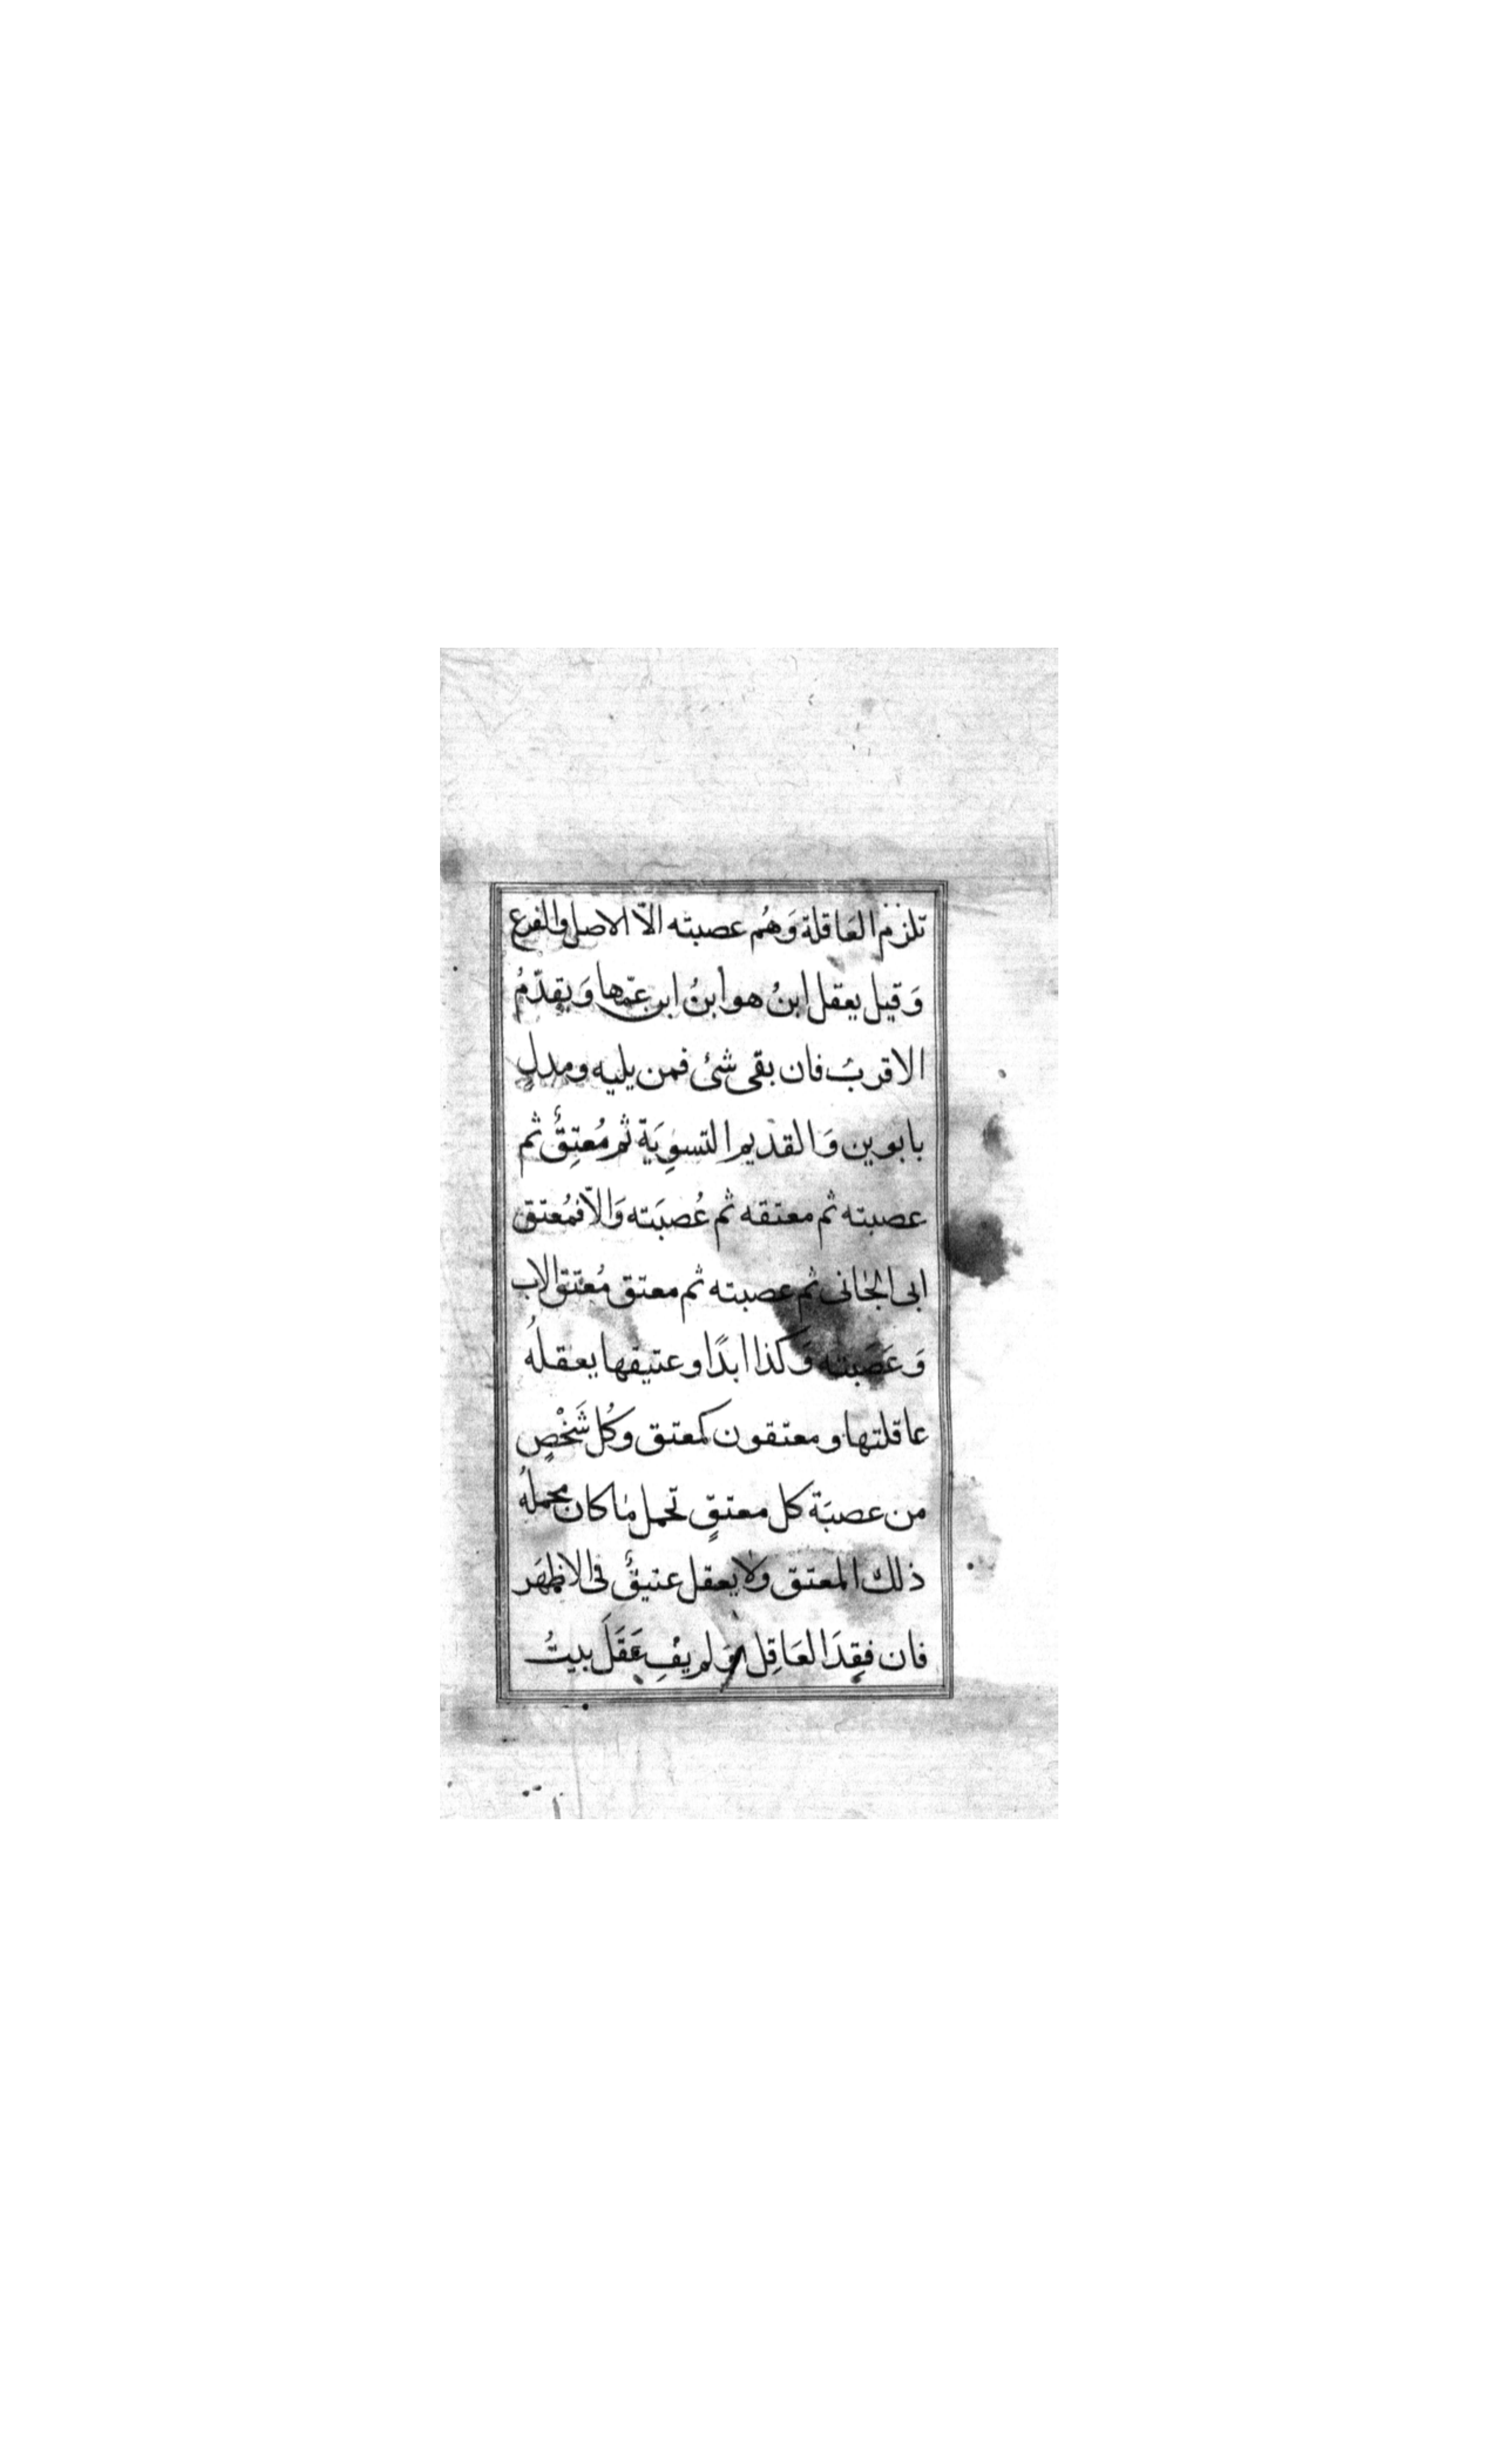 تلزم العَاقلة وَهُم عصبته الاّ الاصل والفرع
وَقيل يعقل ابنُ هو ابنُ ابن عمّها وَيقدّمُ
الاقربُ فان بقى شئ فمن يليه ومدلٍ
بابوين وَالقديم التسوِيَة ثم مُعتِقٌ ثم
عصبته ثم معتقه ثم عُصبَته وَالاّ فمُعتق
ابى الجانى ثم عصبته ثم معتق مُعتق الاب
وَعَصَبته وَكذا ابدًا وعتيقها يعقلهُ
عاقلتها ومعتقون كمعتق وَكُل شَخْصٍ
من عصبَة كل معتقٍ تحمل مَا كان يحملهُ
ذلك المعتق ولا يعقل عتيقٌ فى الاظهَر
فان فقِدَ العَاقِل وَلم يفِ عَقَلَ بيتُ